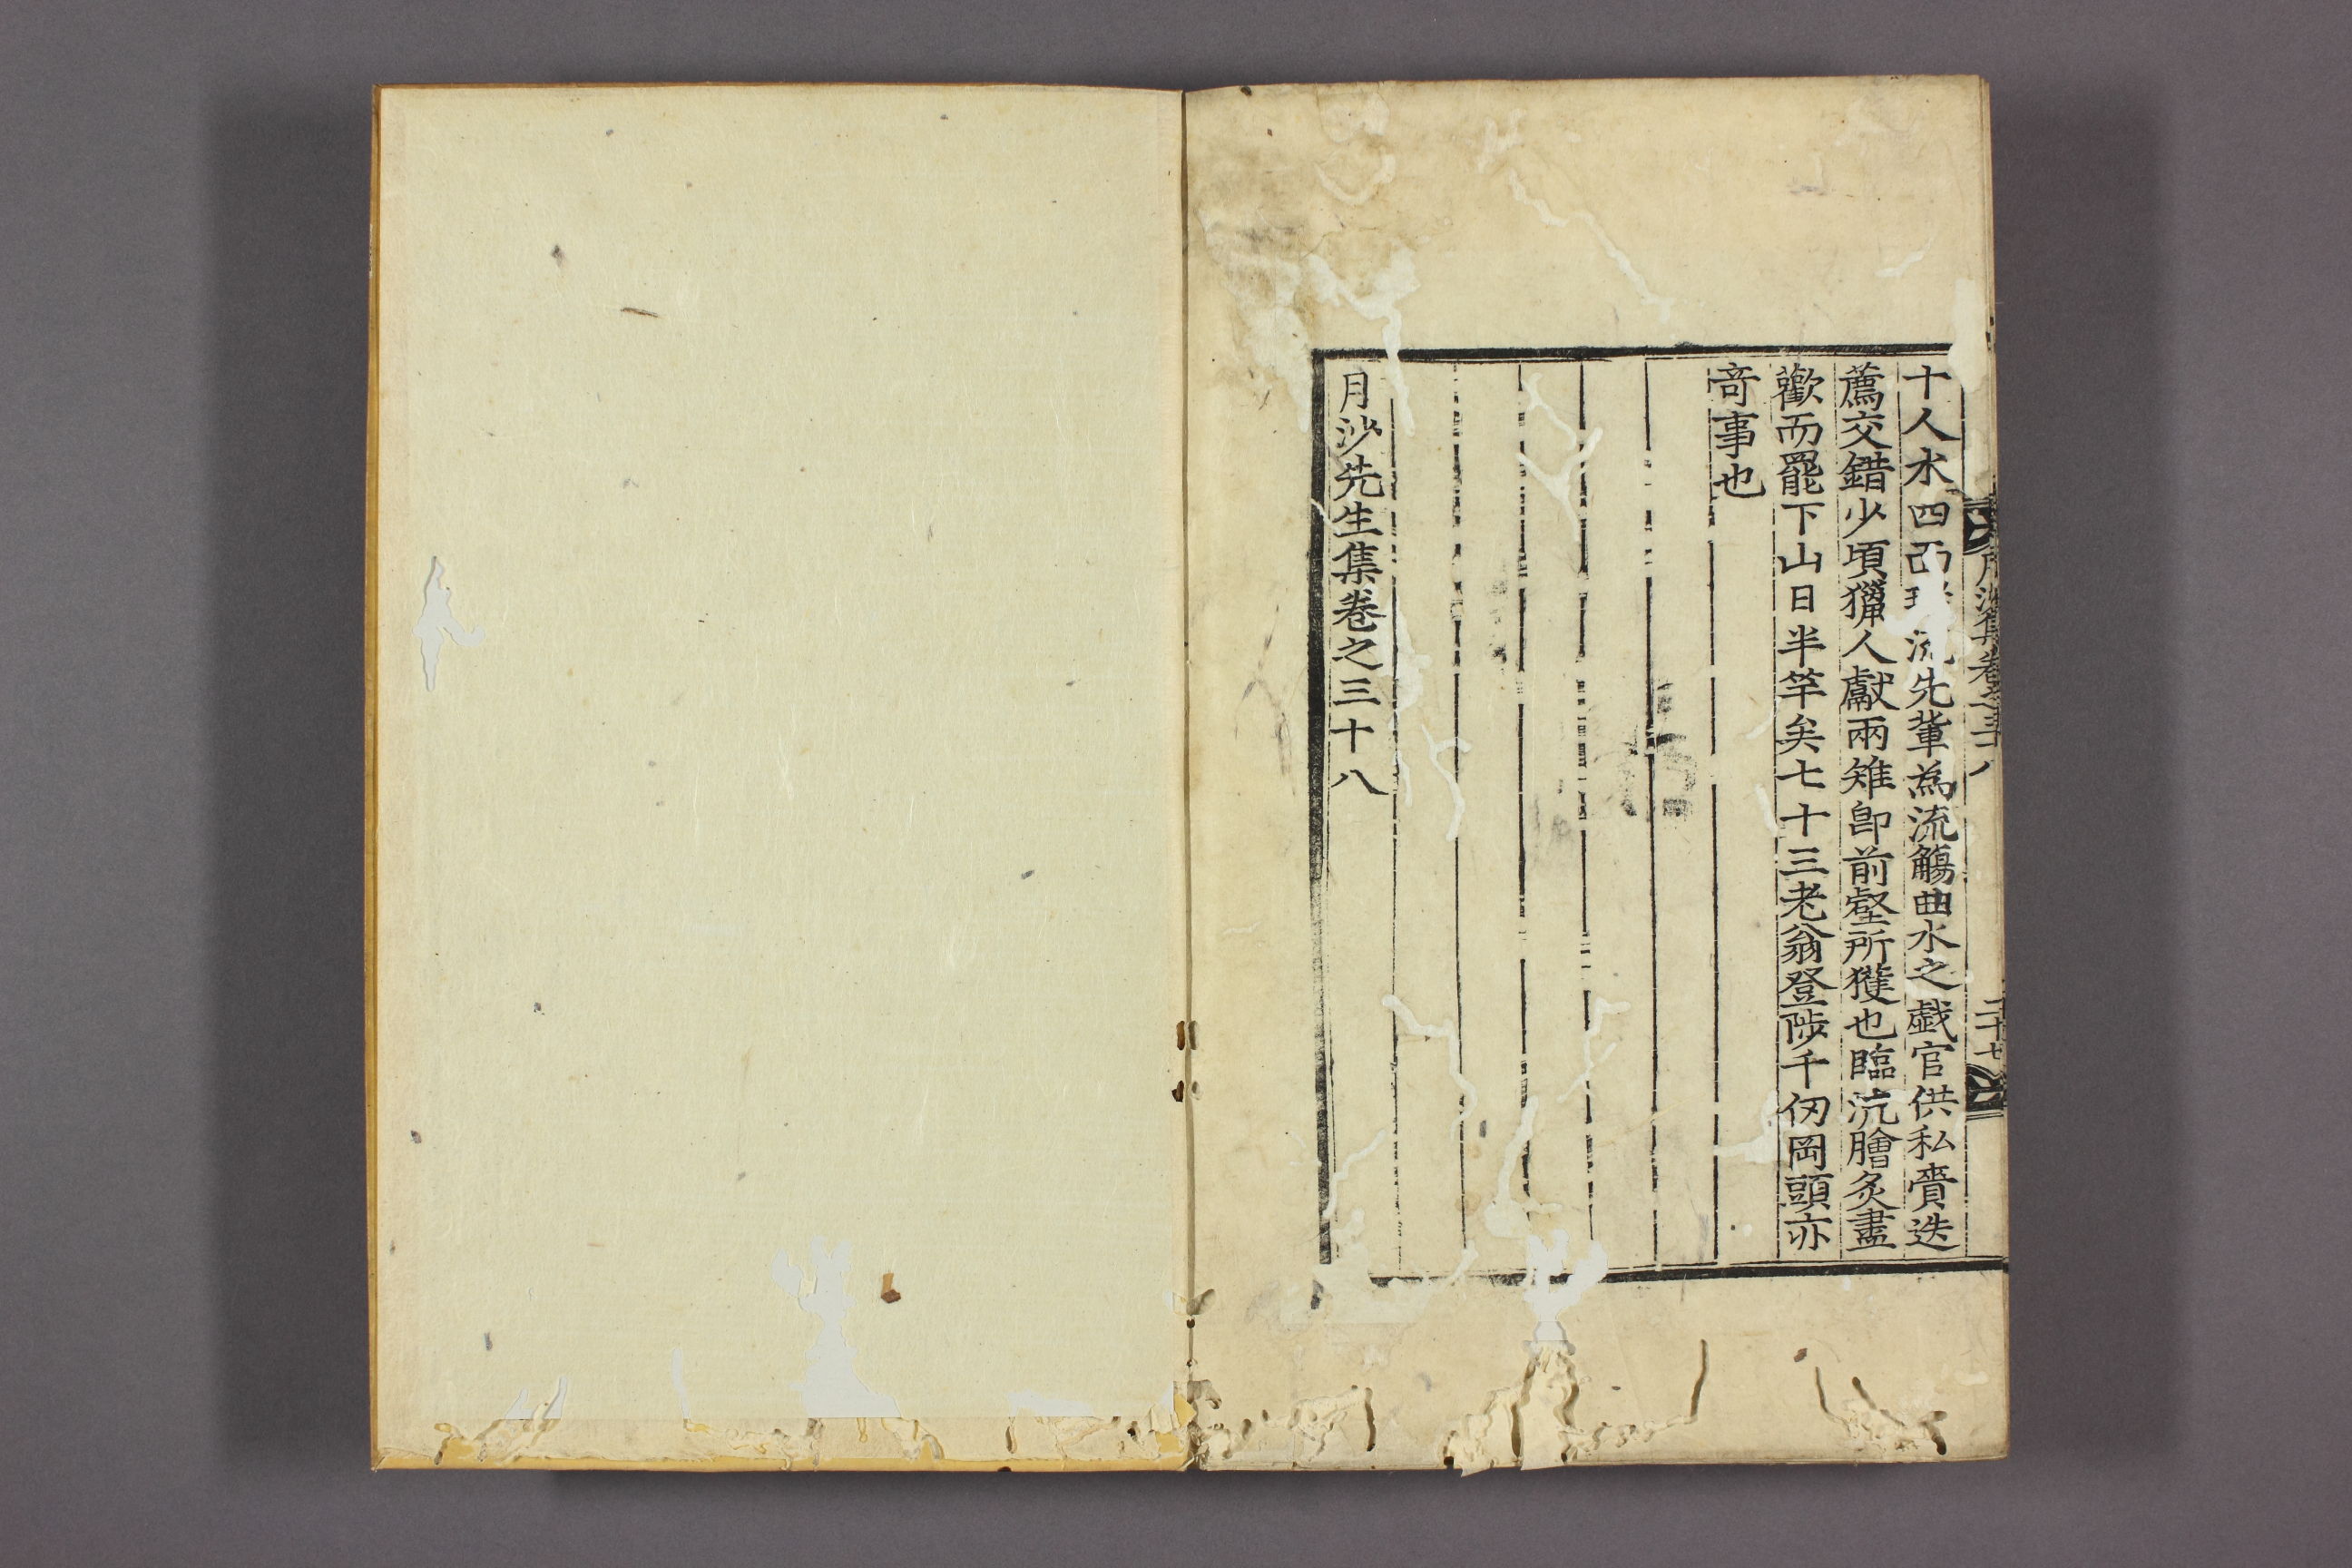 月沙集卷之三十八
二十七
十人水四面流先軰爲流觴曲水之戱官供私賫迭
薦交錯少頃獵人獻兩雉卽前壑所獲也臨流膾炙盡
歡而罷下山日半竿矣七十三老翁登陟千仞岡頭亦
竒事也
月沙先生集卷之三十八